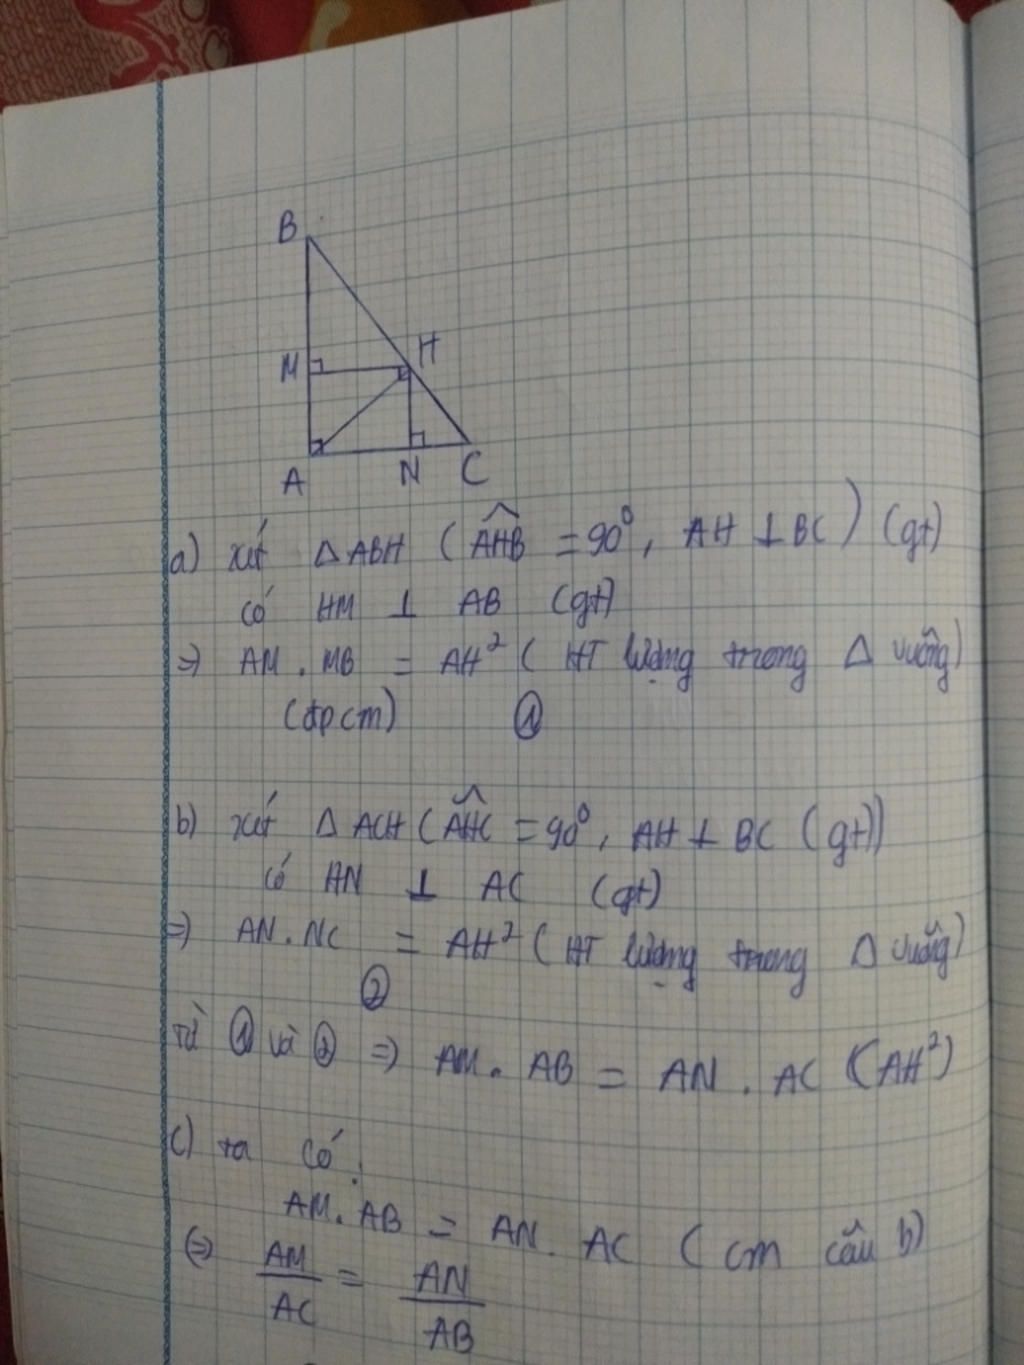 B
M
H
A
N
C
a) xét Δ ABH ( \widehat{AHB} = 90⁰, AH ⊥ BC ) (gt)
có HM ⊥ AB (gt)
=> AM . MB = AH² ( HT lượng trong Δ vuông)
(đpcm) ①
b) xét Δ ACH ( \widehat{AHC} = 90⁰, AH ⊥ BC (gt))
có HN ⊥ AC (gt)
=> AN . NC = AH² ( HT lượng trong Δ vuông)
②
Từ ① và ② => AM . AB = AN . AC (AH²)
c) ta có :
AM . AB = AN . AC ( cm câu b)
(=) \frac{AM}{AC} = \frac{AN}{AB}